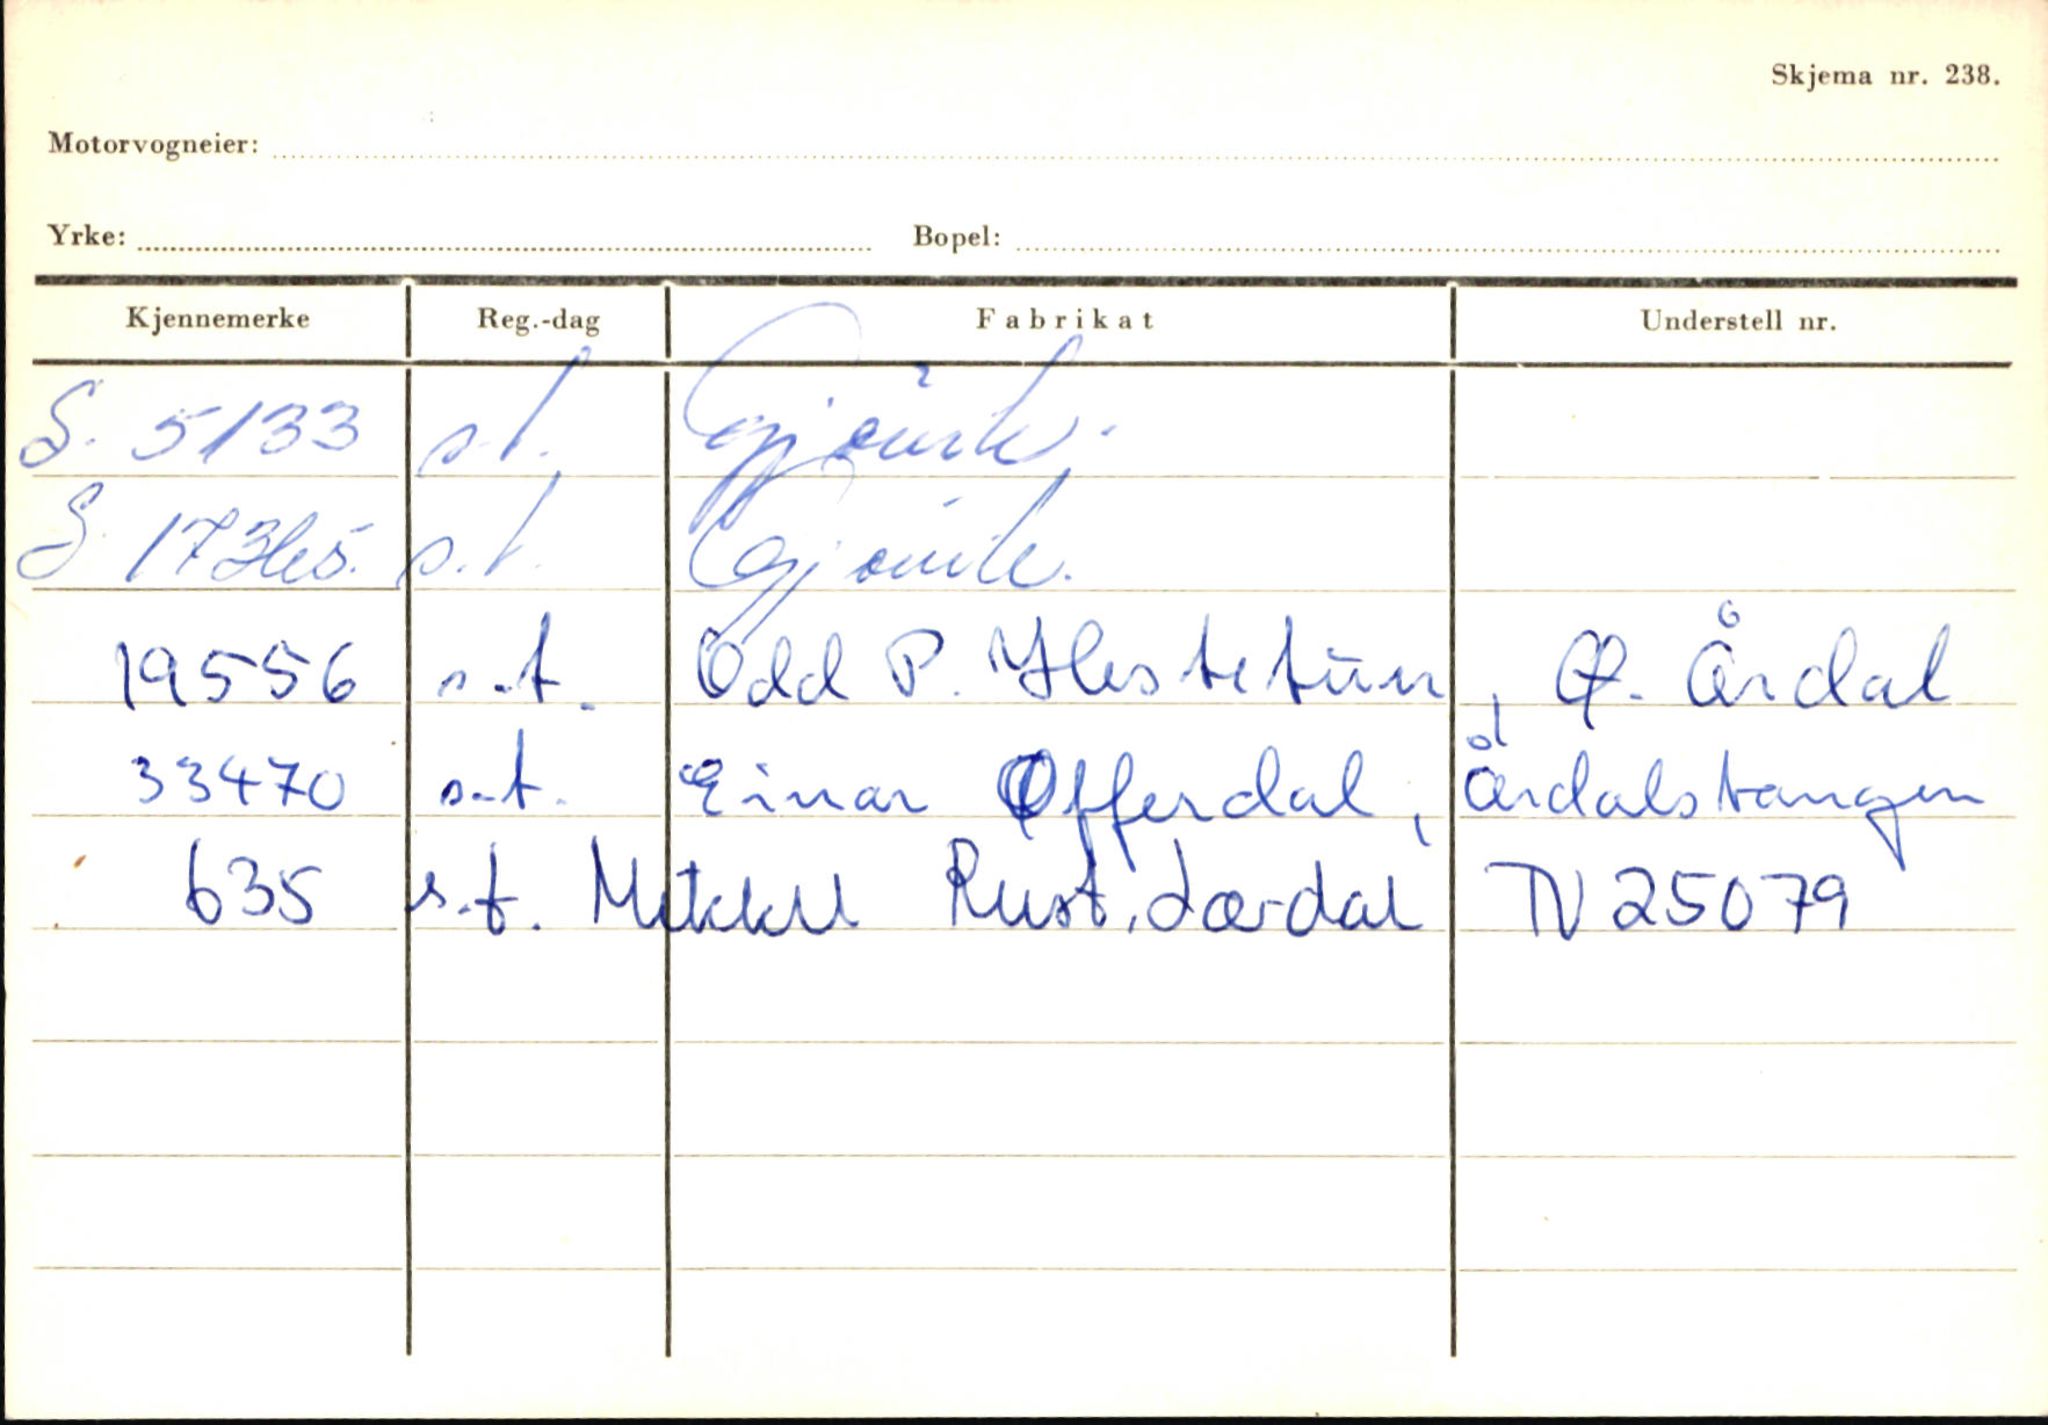 Skjema nr. 238.
Motorvogneier:
Yrke: Bopel:
Kjennemerke Reg.-dag Fabrikat Understell nr.
S. 5133 s.t. Gjøvik.
S. 17365. s.t. Gjøvik.
19556 s.t. Odd P. Hestetun, Ø. Årdal
33470 s.t. Einar Offerdal, Årdalstangen
635 s.t. Mikkel Rust, Lærdal TV 25079